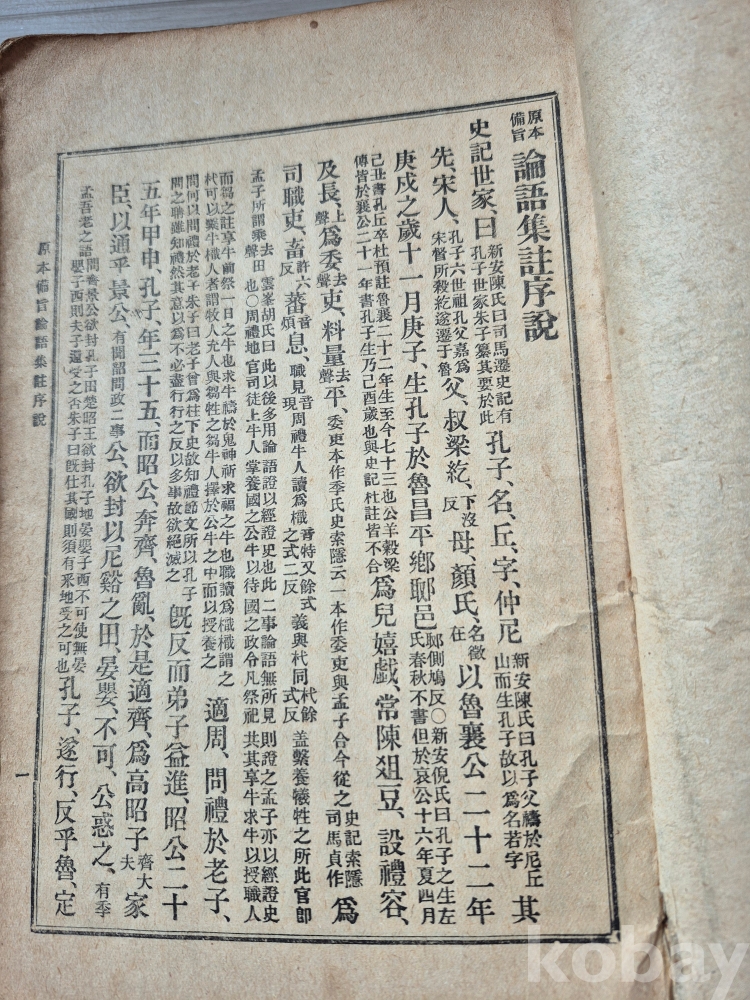 原本備旨 論語集註序說
史記世家、曰新安陳氏曰司馬遷史記有孔子世家朱子纂其要於此孔子、名、丘、字、仲尼新安陳氏曰孔子父禱於尼丘山而生孔子故以爲名若字其
先、宋人、孔子六世祖孔父嘉爲宋督所殺紇遂遷于魯父、叔梁紇、下沒反母、顏氏、名徵在以魯襄公二十二年
庚戌之歲十一月庚子、生孔子於魯昌平鄕郰邑郰側鳩反○新安倪氏曰孔子之生左氏春秋不書但於哀公十六年夏四月
己丑書孔丘卒杜預註魯襄二十二年生至今七十三也公羊穀梁傳皆於襄公二十一年書孔子生乃己酉歲也與史記杜註皆不合爲兒嬉戲、常陳俎豆、設禮容、
及長、上聲爲委去聲吏、料量去聲平、委吏本作季氏史索隱云一本作委吏與孟子合今從之史記索隱司馬貞作爲
司職吏、畜許六反蕃音煩息、職見音現周禮牛人讀爲樴音特又餘式之式二反義與杙同杙餘式反蓋繫養犧牲之所此官卽
孟子所謂乘去聲田也○雲峯胡氏曰此以後多用論語證以經證史也此二事論語無所見則證之孟子亦以經證史周禮地官司徒上牛人掌養國之公牛以待國之政令凡祭祀共其享牛求牛以授職人
而芻之註享牛前祭一日之牛也求牛禱於鬼神祈求福之牛也職讀爲樴樴謂之杙可以繫牛樴人者謂牧人充人與芻牲之芻牛人擇於公牛之中而以授養之適周、問禮於老子、
問何以問禮於老子朱子曰老子曾爲柱下史故知禮節文所以孔子問之聃雖知禮然其意以爲不必盡行行之反以多事故欲絕滅之旣反而弟子益進、昭公二十
五年甲申、孔子、年三十五、而昭公、奔齊、魯亂、於是適齊、爲高昭子齊大夫家
臣、以通乎景公、有聞韶問政二事公、欲封以尼谿之田、晏嬰、不可、公惑之、有季
孟吾老之語問齊景公欲封孔子田楚昭王欲封孔子地晏嬰子西不可使無晏嬰子西則夫子還受之否朱子曰旣仕其國則須有采地受之可也孔子、遂行、反乎魯、定
原本備旨論語集註序說
一
kobay